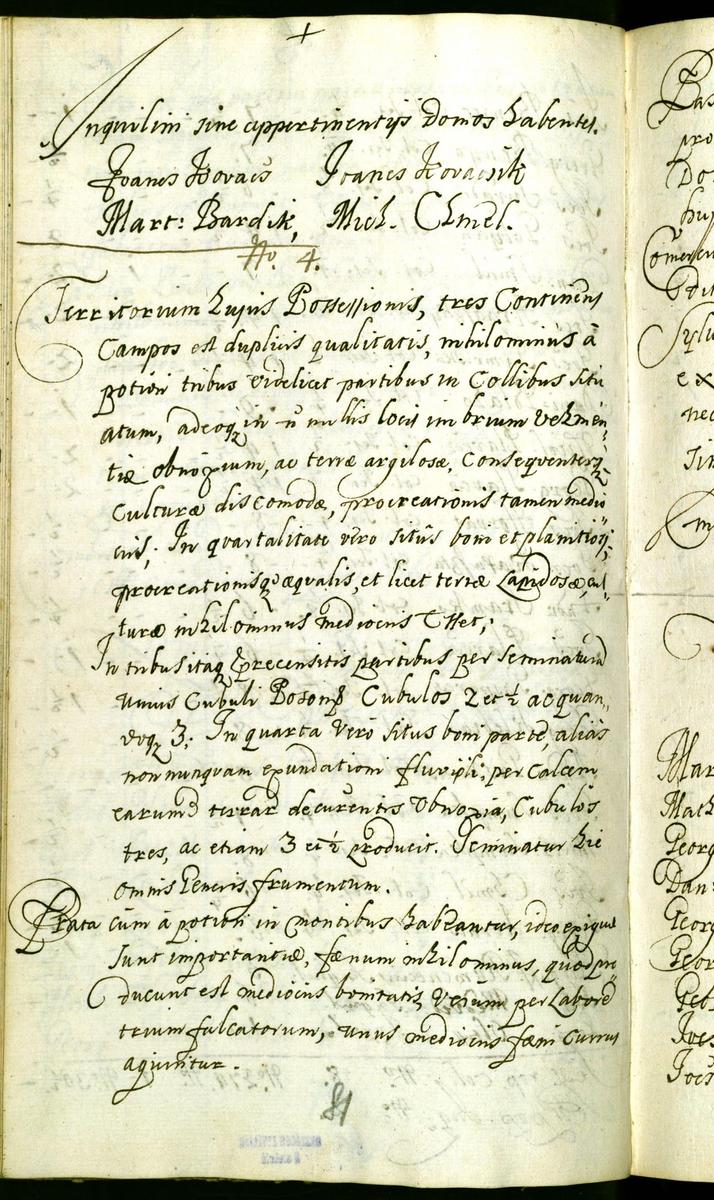 +
Inquilini sine appertinentijs Domos habentes.
Joanes Kovacs Joanes Kovacsik
Mart: Bardik, Mich. Chmel.
No. 4.
Territorium hujus Possessionis, tres Continens
Campos est duplicis qualitatis, nihilominus à
potiori tribus videlicet partibus in Collibus situ
atum, adeoq in nullis locis imbrium vehemen
tiæ obnoxium, ac terræ argilosæ, Consequenterq
Culturæ discomodæ, procreationis tamen medio
cris; In quartalitate vero situs boni et planitiosi,
procreationisq æqualis, et licet terræ Lapidosæ, cul
turæ nihilominus mediocris esset;
In tribus itaq præcensitis partibus per seminaturam
unius Cubuli Poson Cubulos 2 et ½ ac quan
doq 3; In quarta vero situs boni parte, alias
non nunquam exundationi fluvioli, per Calcem
earum terrar decurrentis obnoxia, Cubulos
tres, ac etiam 3 et ½ producit. Seminatur hic
omnis Generis frumentum.
Prata cum à potiori in montibus habeantur, ideo exiguæ
sunt importantiæ, fænum nihilominus, quod pro
ducunt est mediocris bonitatis, verum per Laborem
trium falcatorum, unus mediocris fæni currus
aquiritur.